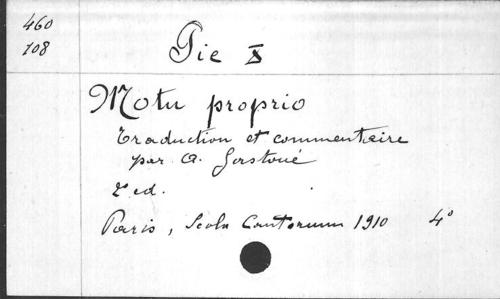 460
108
Pie X
Motu proprio
traduction et commentaire
par A. Gastoué
2 ed.
Paris, Scola Cantorum 1910 4°